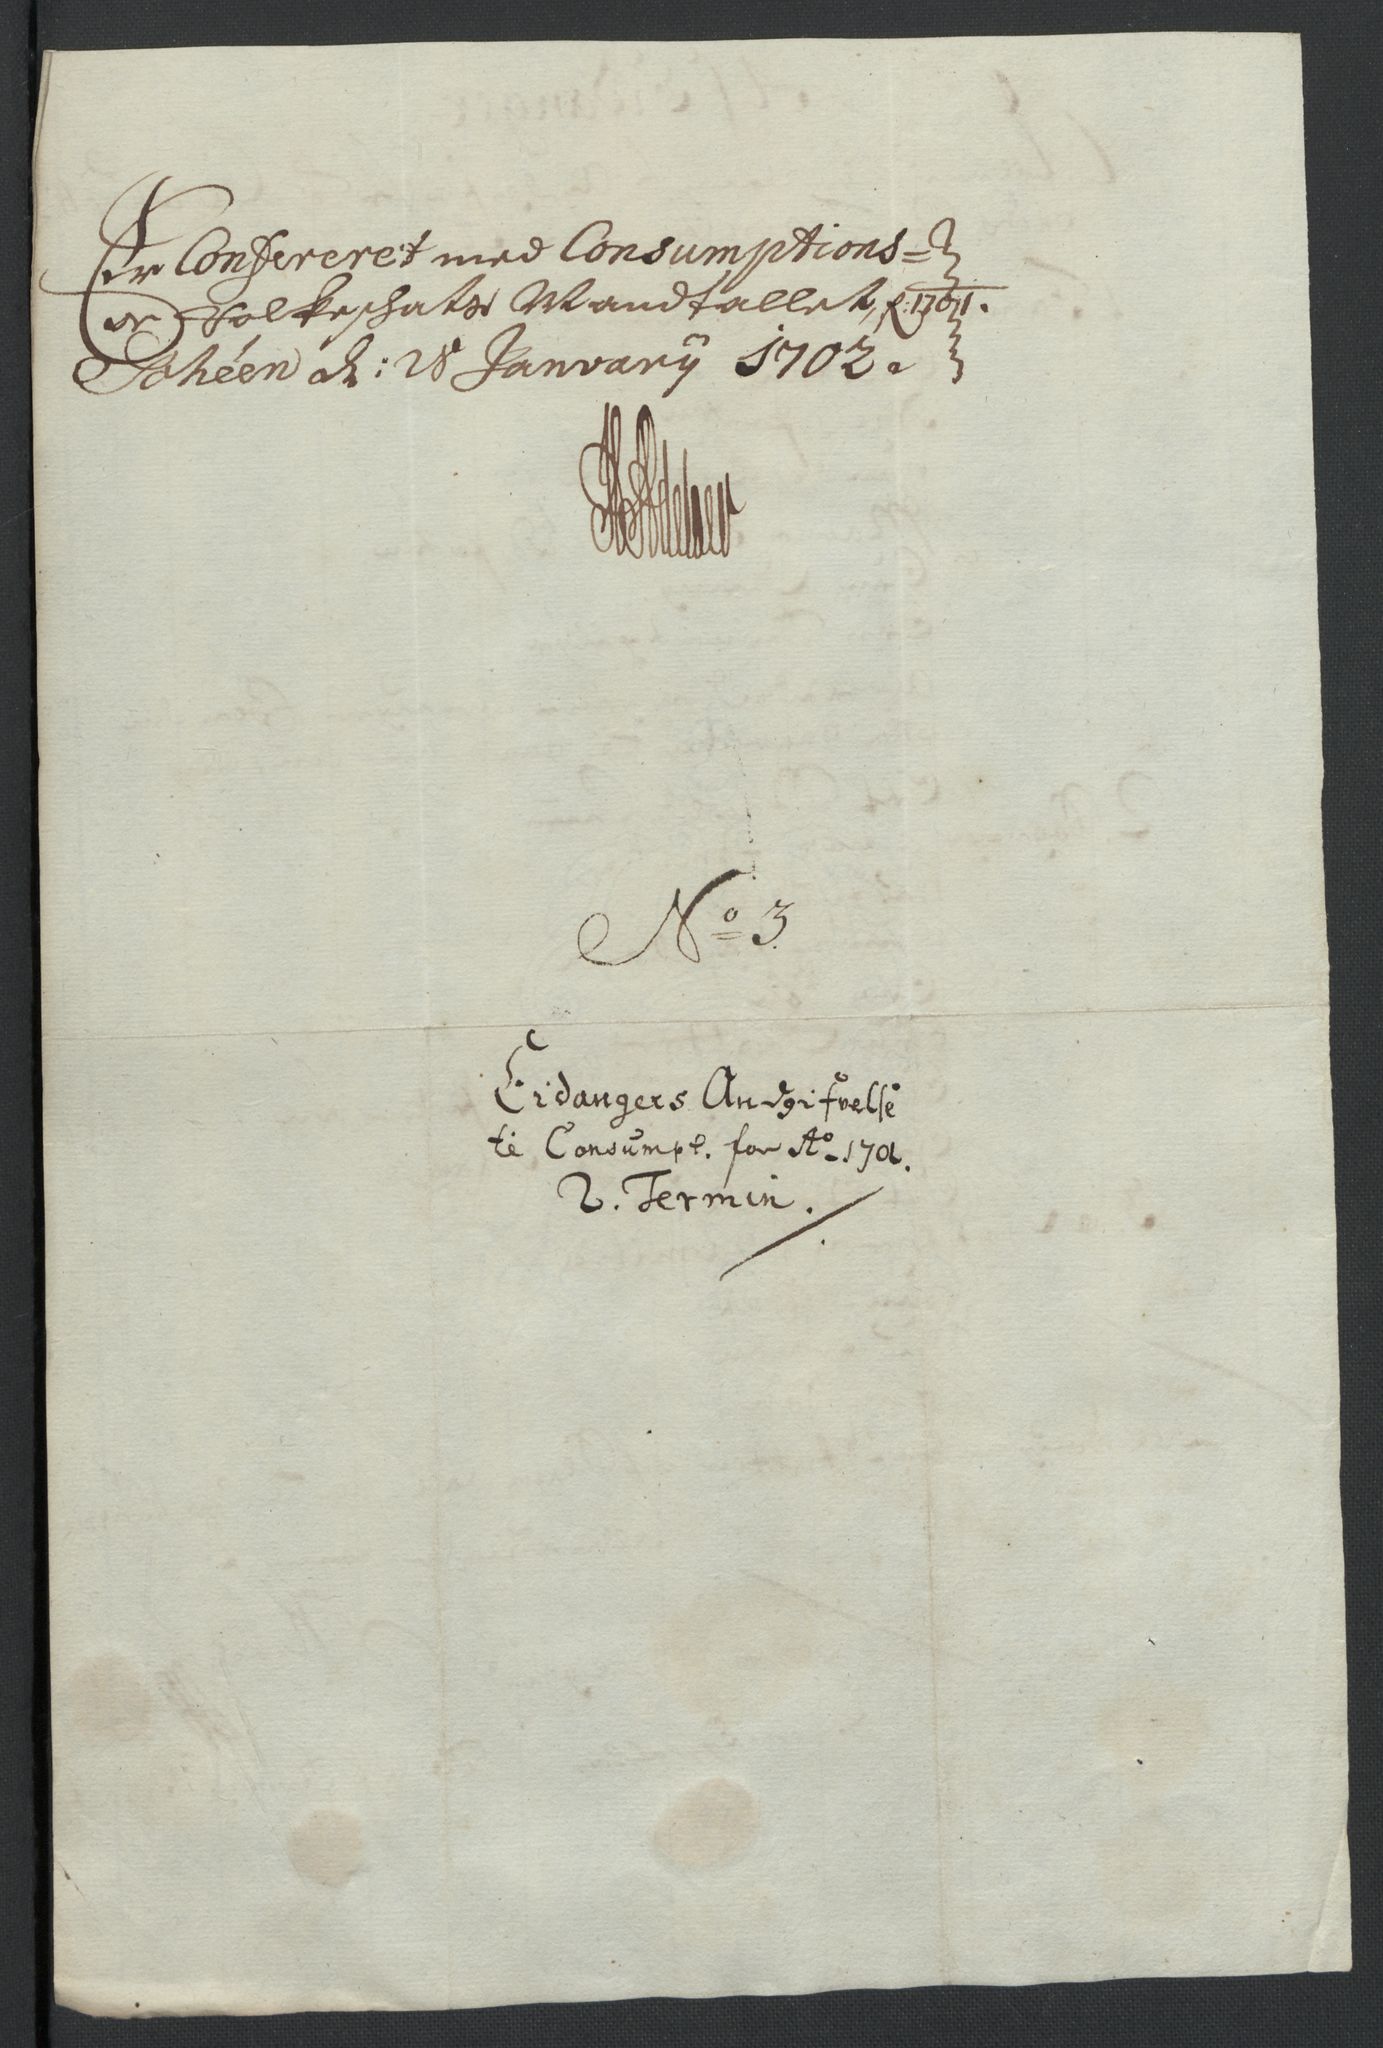 Er Confereret med Consumptions=
og Folkeschats Mandtallet, p: 1701.
Schéen d: 28 Januarij 1702.
No 3
Eidangers Andgifvelse
til Consumpt. for Ao 1701.
2. Termin.